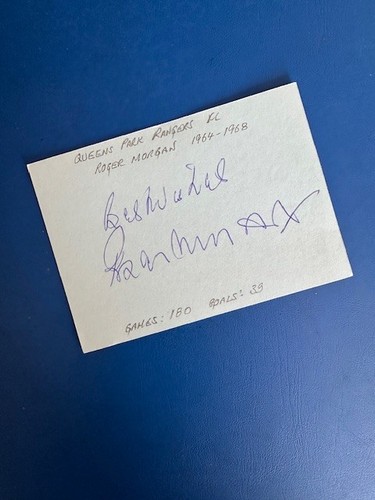 QUEENS PARK RANGERS FC
ROGER MORGAN 1964-1968
Best Wishes
Roger Morgan
GAMES: 180 GOALS: 39